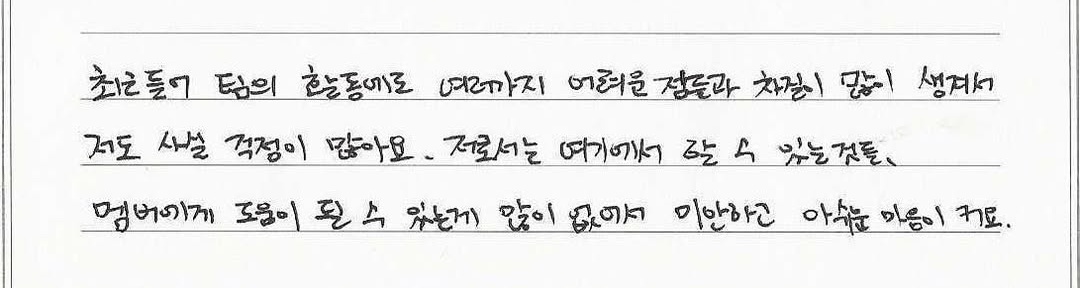 최근들어 팀의 활동에도 여러가지 어려운 점들과 차질이 많이 생겨서
저도 사실 걱정이 많아요. 저로서는 여기에서 할 수 있는것들,
멤버에게 도움이 될 수 있는게 많이 없어서 미안하고 아쉬운 마음이 커요.